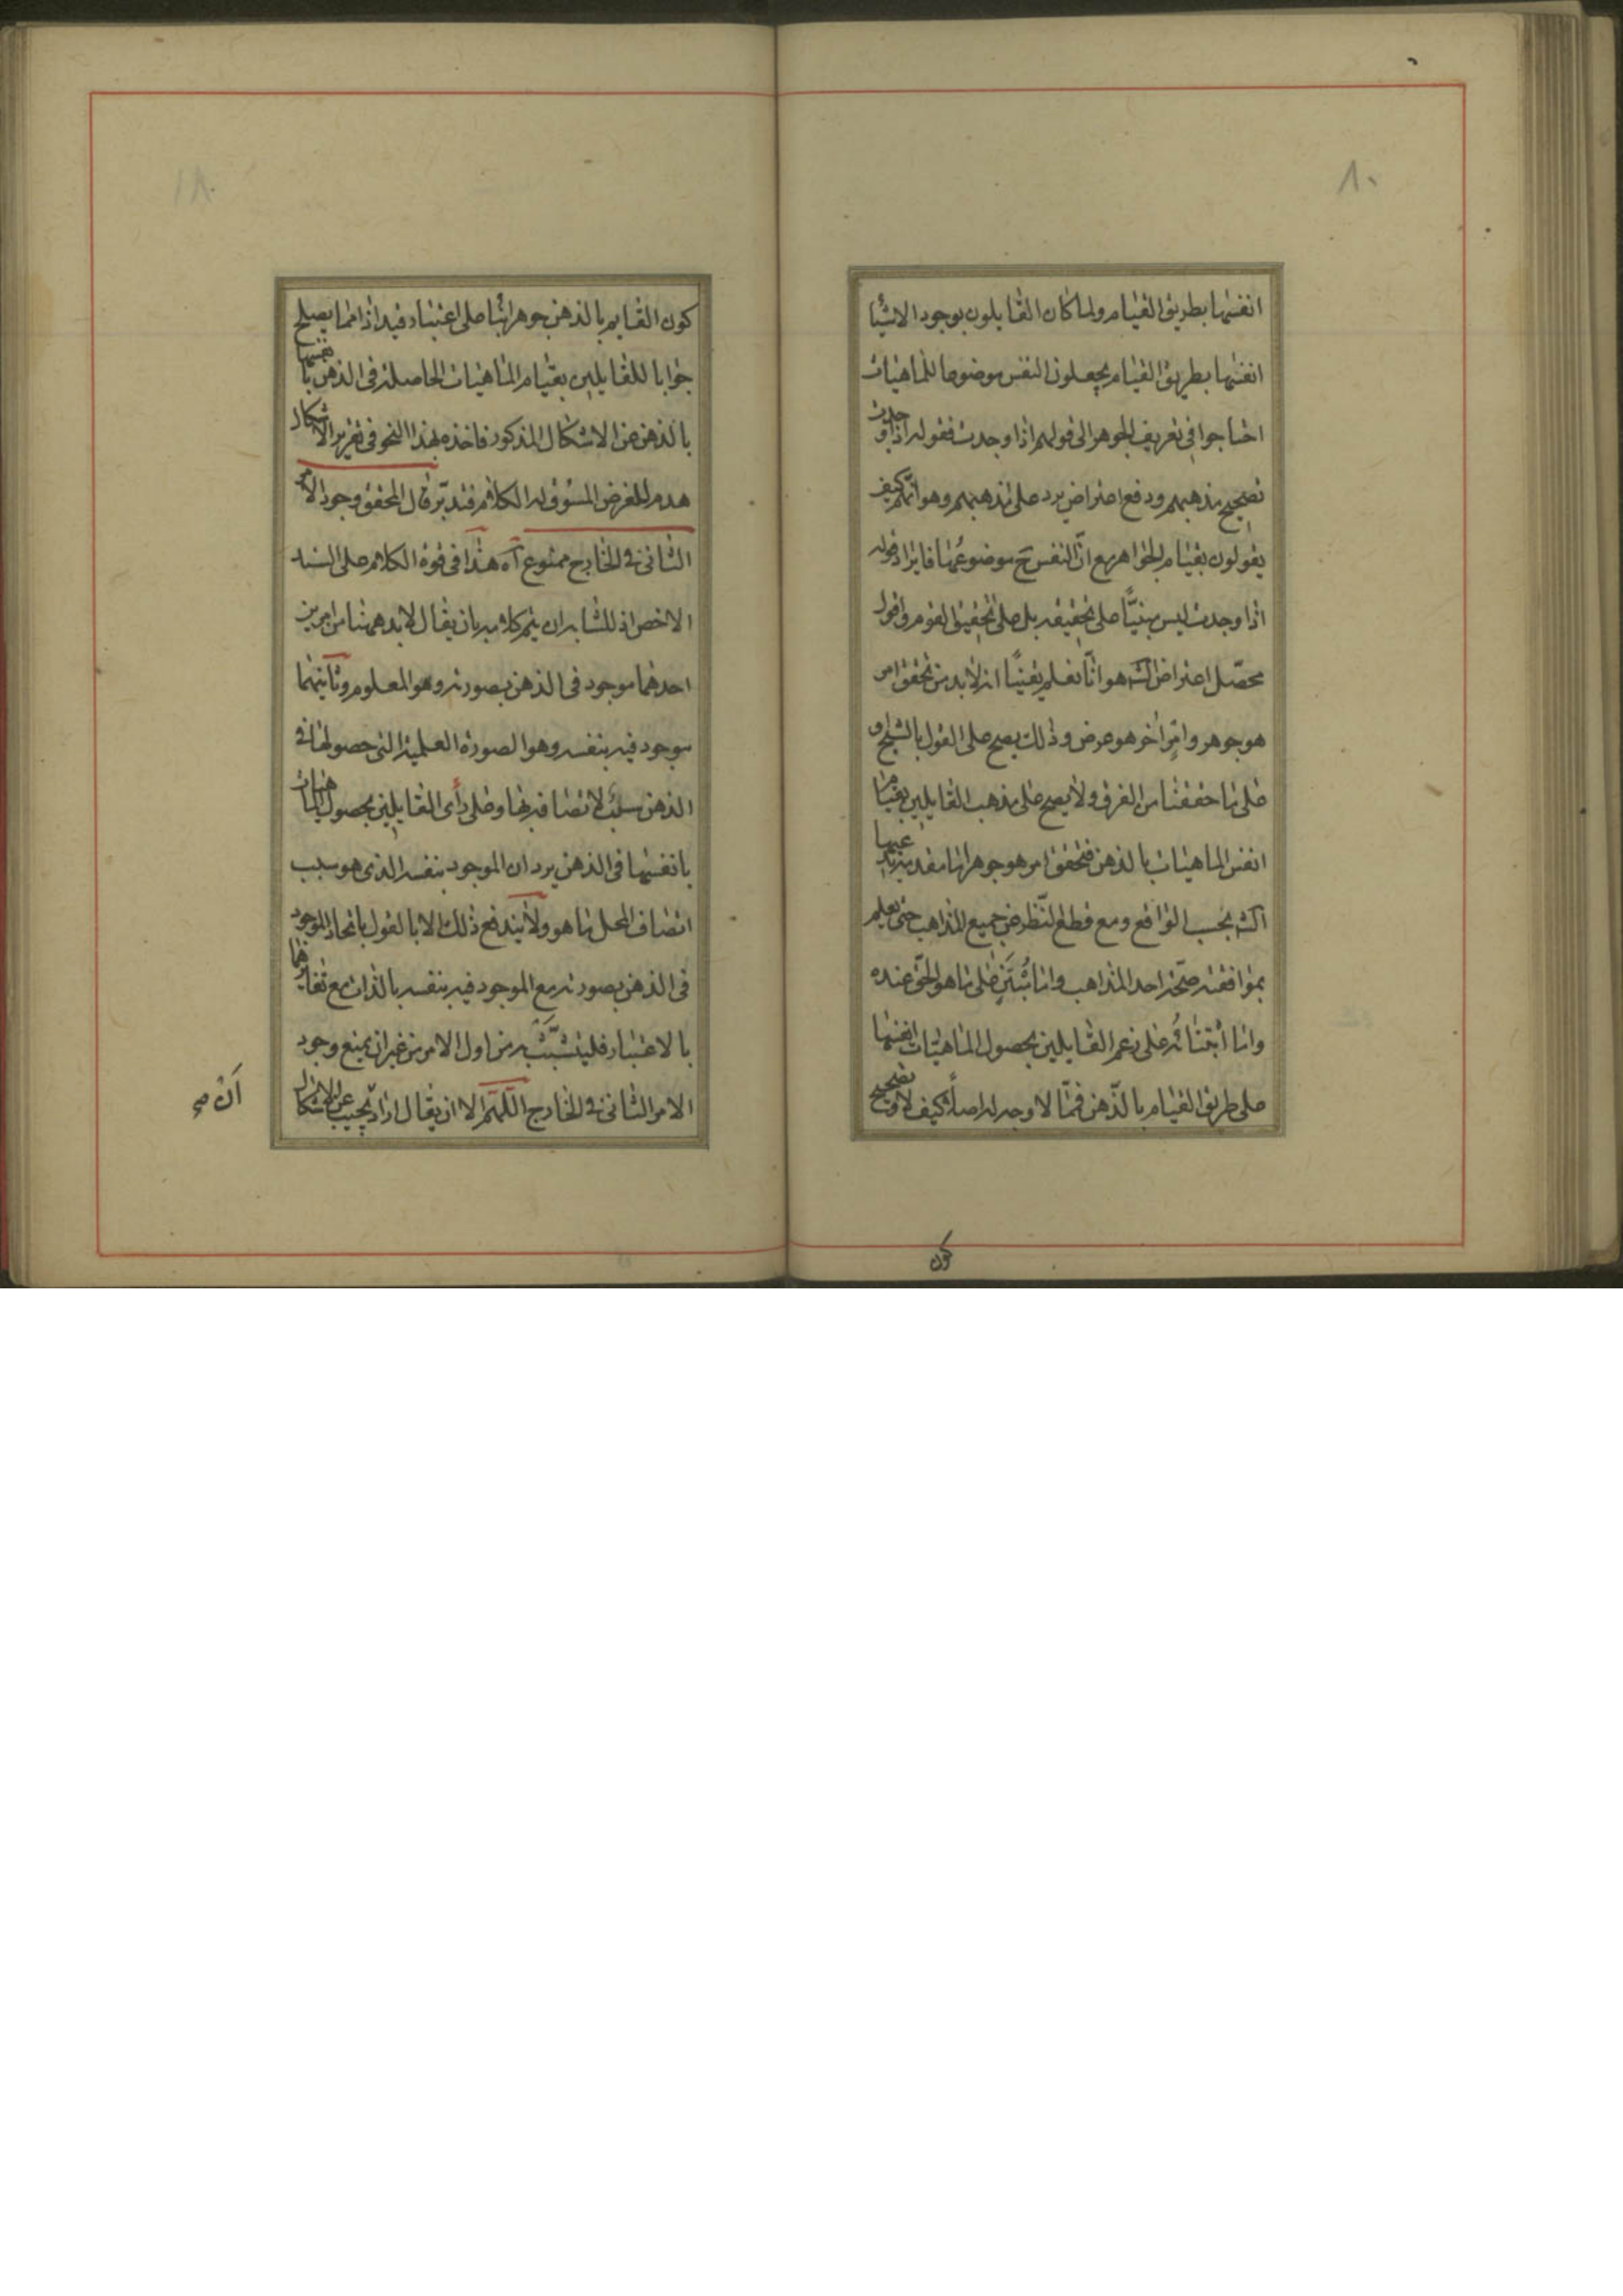 ٨٠
انفسها بطريق القيام ولما كان القايلون بوجود الاشيا
انفسها بطريق القيام يجعلون النفس موضوعا للماهيات
احتاجوا في تعريف الجوهر الى قولهم اذا وجدت فقوله اذا وجدت
تصحيح مذهبهم ودفع اعتراض يرد على مذهبهم وهو انهم كيف
يقولون بقيام الجواهر مع انّ النفس ح موضوع لها فايراد قوله
اذا وجدت ليس مبنيًّا على تحقيقه بل على تحقيق القوم واقول
محصّل اعتراض الش هو انّا نعلم يقينًا انه لابد من تحقق امر
هو جوهر وامرٍ اخر هو عرض وذلك يصح على القول بالشبح و
على ما حققنا من الفرق ولا يصح على مذهب القايلين بقيام
انفس الماهيات بالذهن فتحقق امر هو جوهر انما مقدمة يدعيها
الش بحسب الواقع ومع قطع النّظر عن جميع المذاهب حتى يعلم
بموافقته صحّة احد المذاهب واما على ما هو الحقّ عنده
واما على زعم القايلين بحصول الماهيّات انفسها
على طريق القيام بالذّهن فممّا لا وجه له اصلًا كيف لا وتصحيح
كون
كون القايم بالذهن جوهرا بناء على اعتبار قيد اذا انما يصلح
جوابا للقايلين بقيام الماهيات الحاصلة في الذهن بانفسها
بالذهن عن الاشكال المذكور فاخذه بهذا النحو في تقرير الاشكال
هدم للغرض المسوق له الكلام فتدبّر قال المحقق وجود الامر
الثاني في الخارج ممنوع آه هذا في قوة الكلام على السند
الاخص اذ للشارح ان يتم كلامه بان يقال لابد ههنا من امرين
احدهما موجود في الذهن بصورته وهو المعلوم وثانيهما
موجود فيه بنفسه وهو الصورة العلمية التي حصولها في
الذهن سبب لاتصافه بها وعلى رأى القايلين بحصول الماهيات
بانفسها في الذهن يرد ان الموجود بنفسه الذي هو سبب
اتصاف المحل ما هو ولا يندفع ذلك الا بالقول باتحاد الموجود
في الذهن بصورته مع الموجود فيه بنفسه بالذات مع تغايرهما
بالاعتبار فليتشبّث به من اول الامر من غير ان يمنع وجود
الامر الثاني في الخارج اللّهمّ الا ان يقال اراد يجيب عن الاشكال